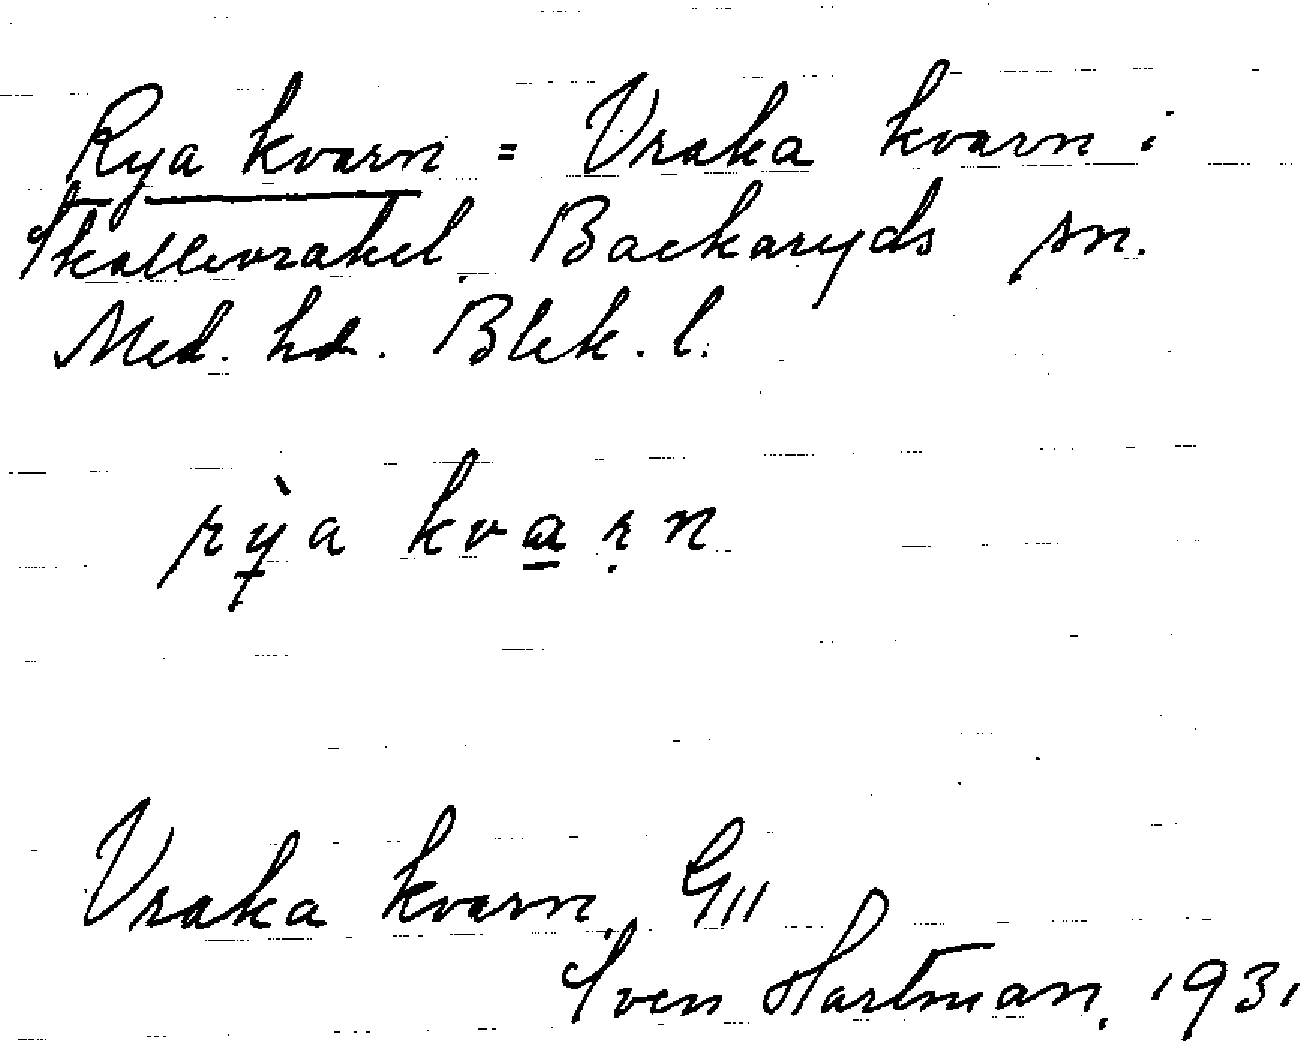 Rya kvarn = Vraka kvarn i
Skallevrakel, Backaryds sn.
Med. hd. Blek. l.
rỳa kva̲ṛn
Vraka kvarn, GII
Sven Hartman, 1931